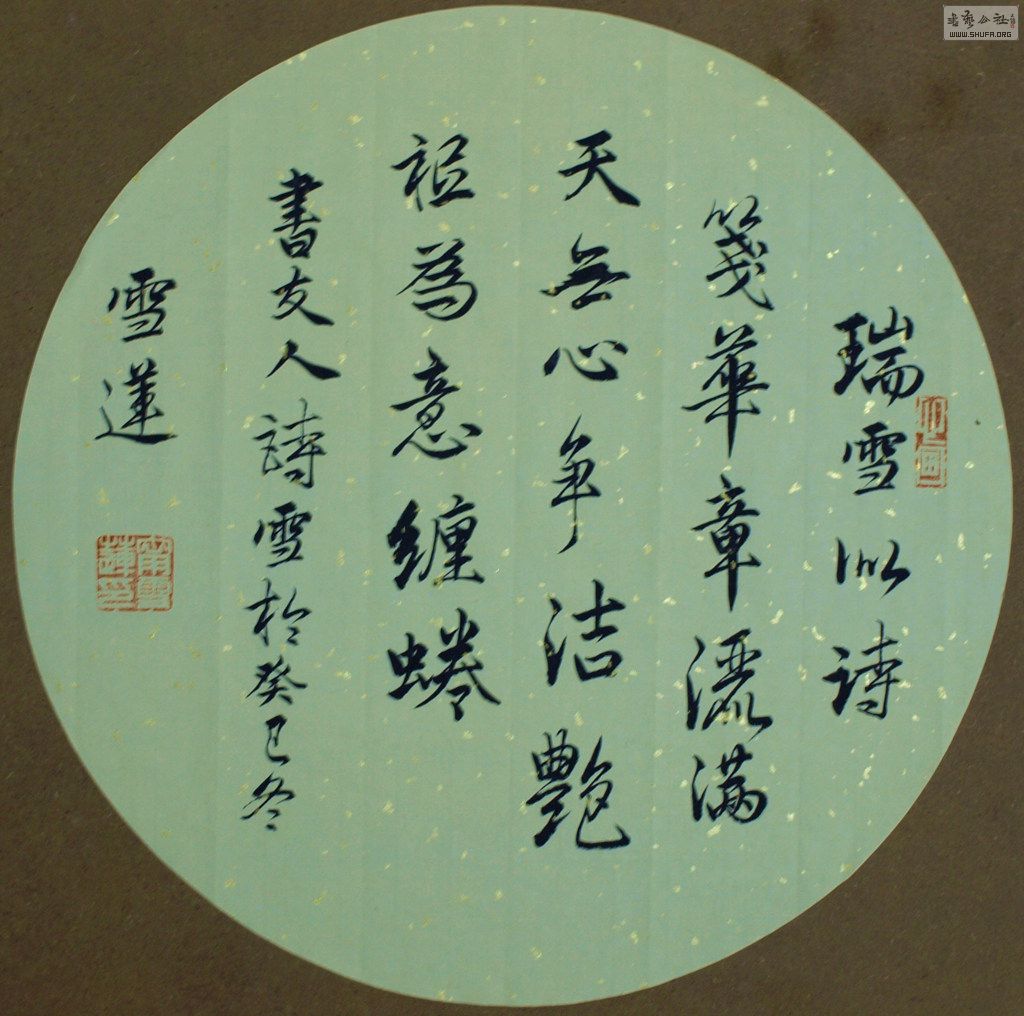 瑞雪似诗
笺華章灑满
天無心争洁艷
祗為意缠蜷
書友人诗雪於癸巳冬
雪莲
書藝公社
WWW.SHUFA.ORG